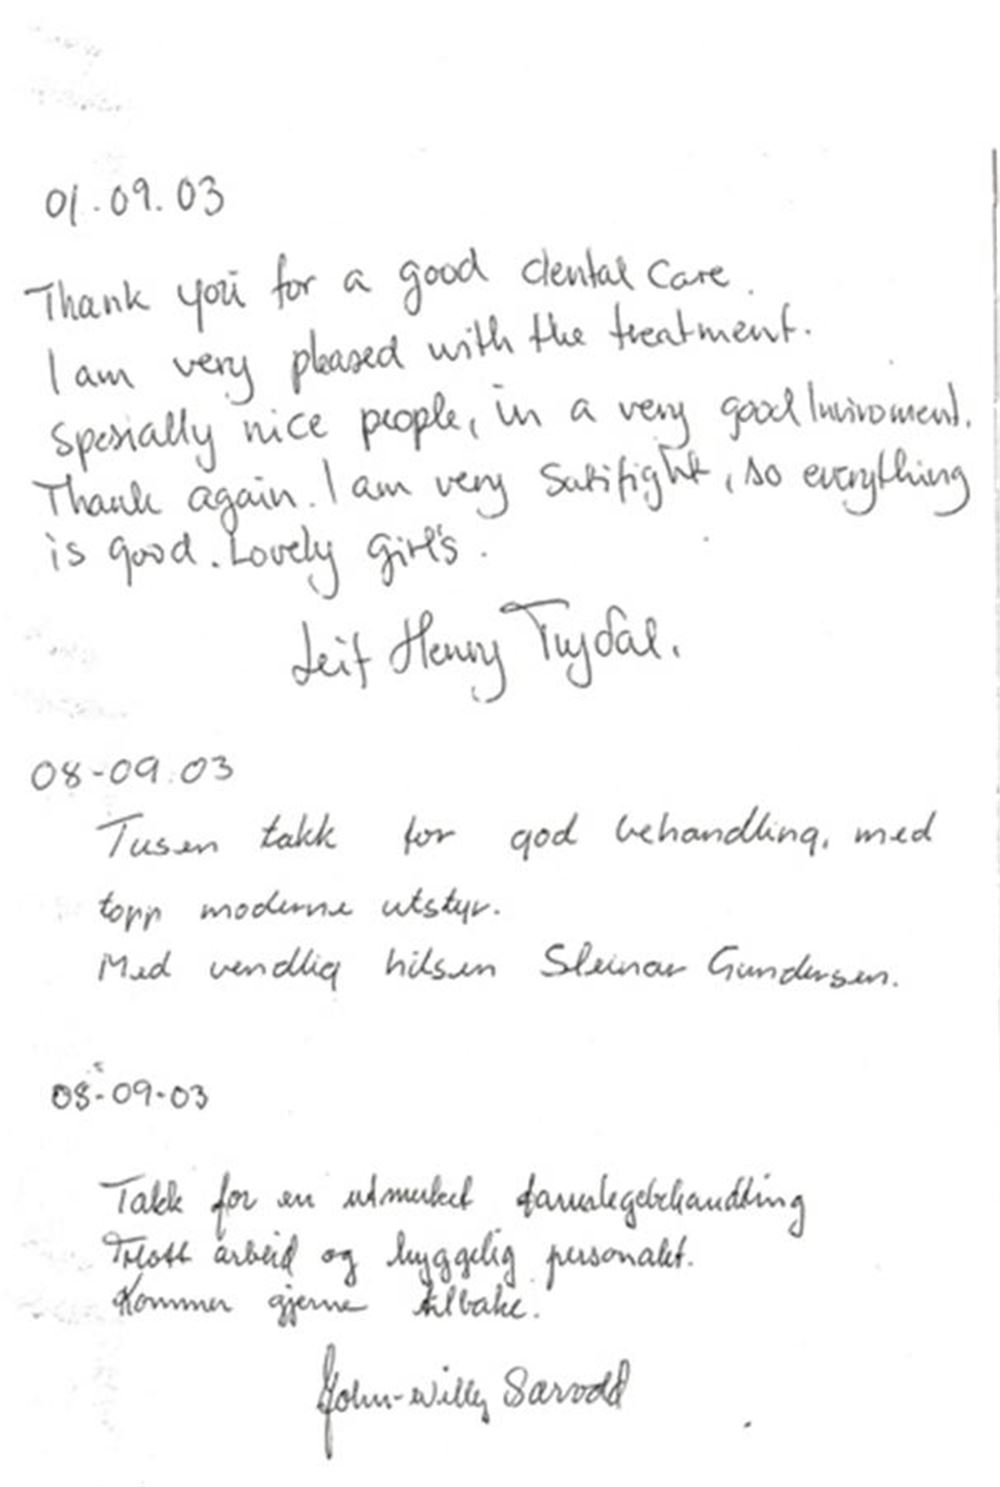 01.09.03
Thank you for a good dental Care.
I am very pleased with the treatment.
Spesially nice people, in a very good Inviroment.
Thank again. I am very Satifight, so everything
is good. Lovely girl's.
Leif Henry
08-09.03
Tusen takk for god behandling, med
topp moderne utstyr.
Med vendlig hilsen Steinar Gundersen.
08-09-03
Takk for en utmerket tannlegebehandling
Flott arbeid og hyggelig personalet.
Kommer gjerne tilbake.
John-Willy